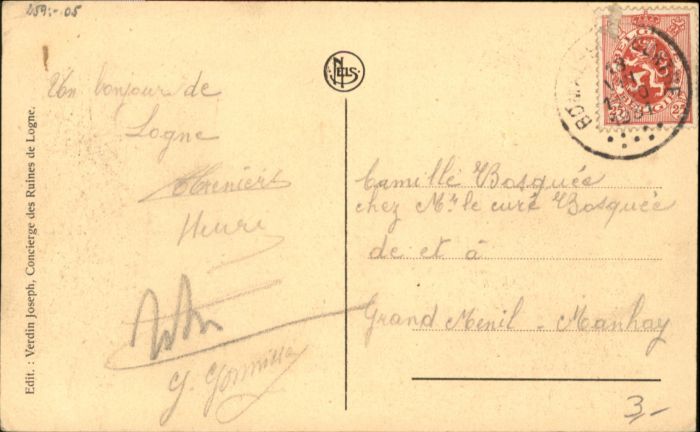 259:-05
Un bonjour de
Logne
Henri
Edit. : Verdin Joseph, Concierge des Ruines de Logne.
NELS
BELGIE
BELGIQUE
BOMAL
1931
Camille Bosquée
chez Mr le curé Bosquée
de et à
Grand Menil - Manhay
3,-